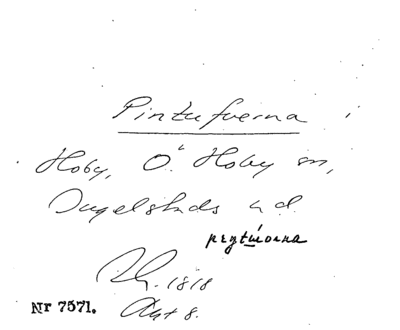 Pintuforna i
Hoby, Ö. Hoby sn,
Ingelstads hd.
pɪntɯ́vorna
1818
Nr 7571. Akt 8.